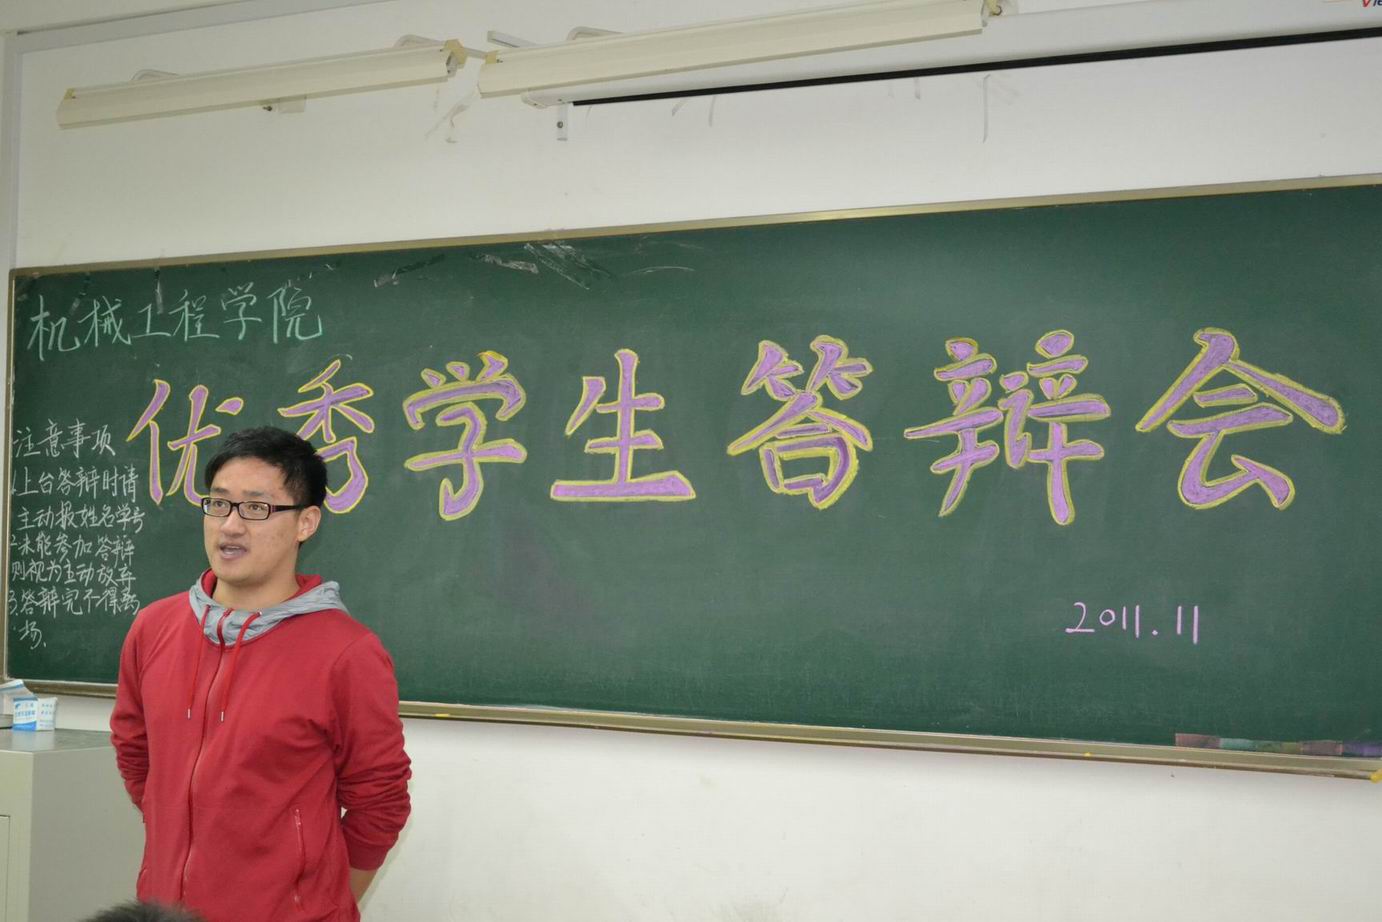 机械工程学院
优秀学生答辩会
注意事项
1.上台答辩时请
主动报姓名学号
2.未能参加答辩
则视为主动放弃
3.答辩完不得离
场.
2011.11